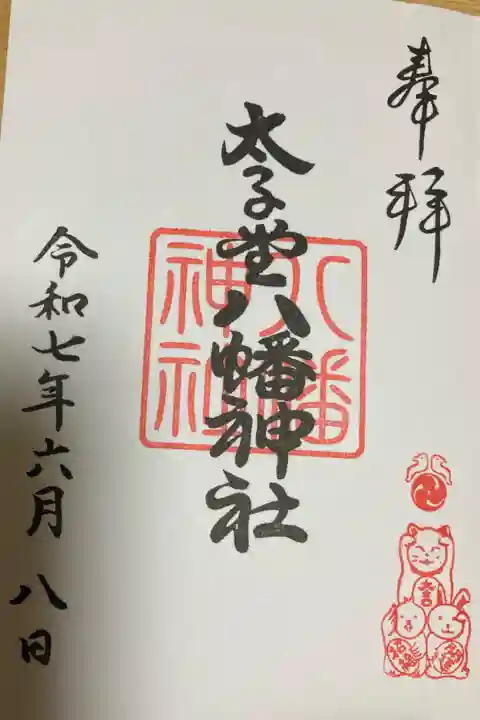 奉拝
太子堂八幡神社
八幡
神社
令和七年六月八日
大吉